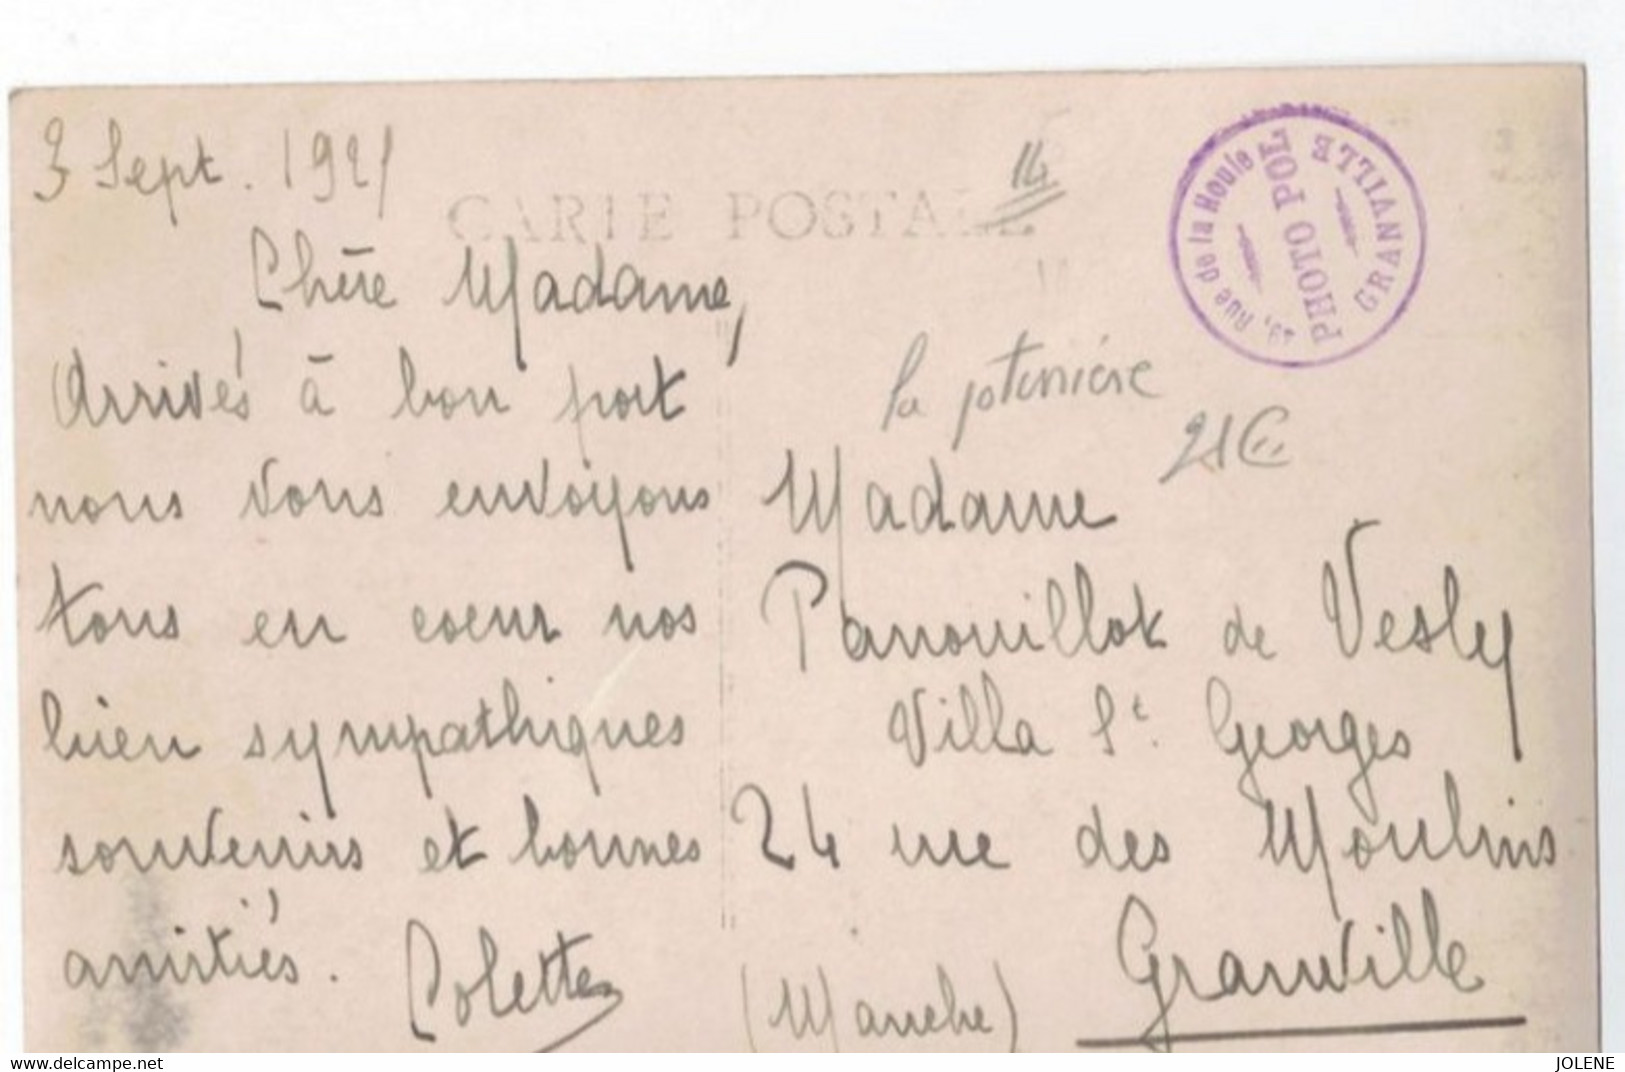 3 Sept. 1921
CARTE POSTALE
14
Rue de la Houle
PHOTO POL
GRANVILLE
Chère Madame,
Arrivés à bon port
nous vous envoyons
tous en coeur nos
bien sympathiques
souvenirs et bonnes
amitiés. Colette
la potinière
21€
Madame
Panouillot de Vesly
Villa St. Georges
24 rue des Moulins
Granville
(Manche)
delcampe.net
JOLENE